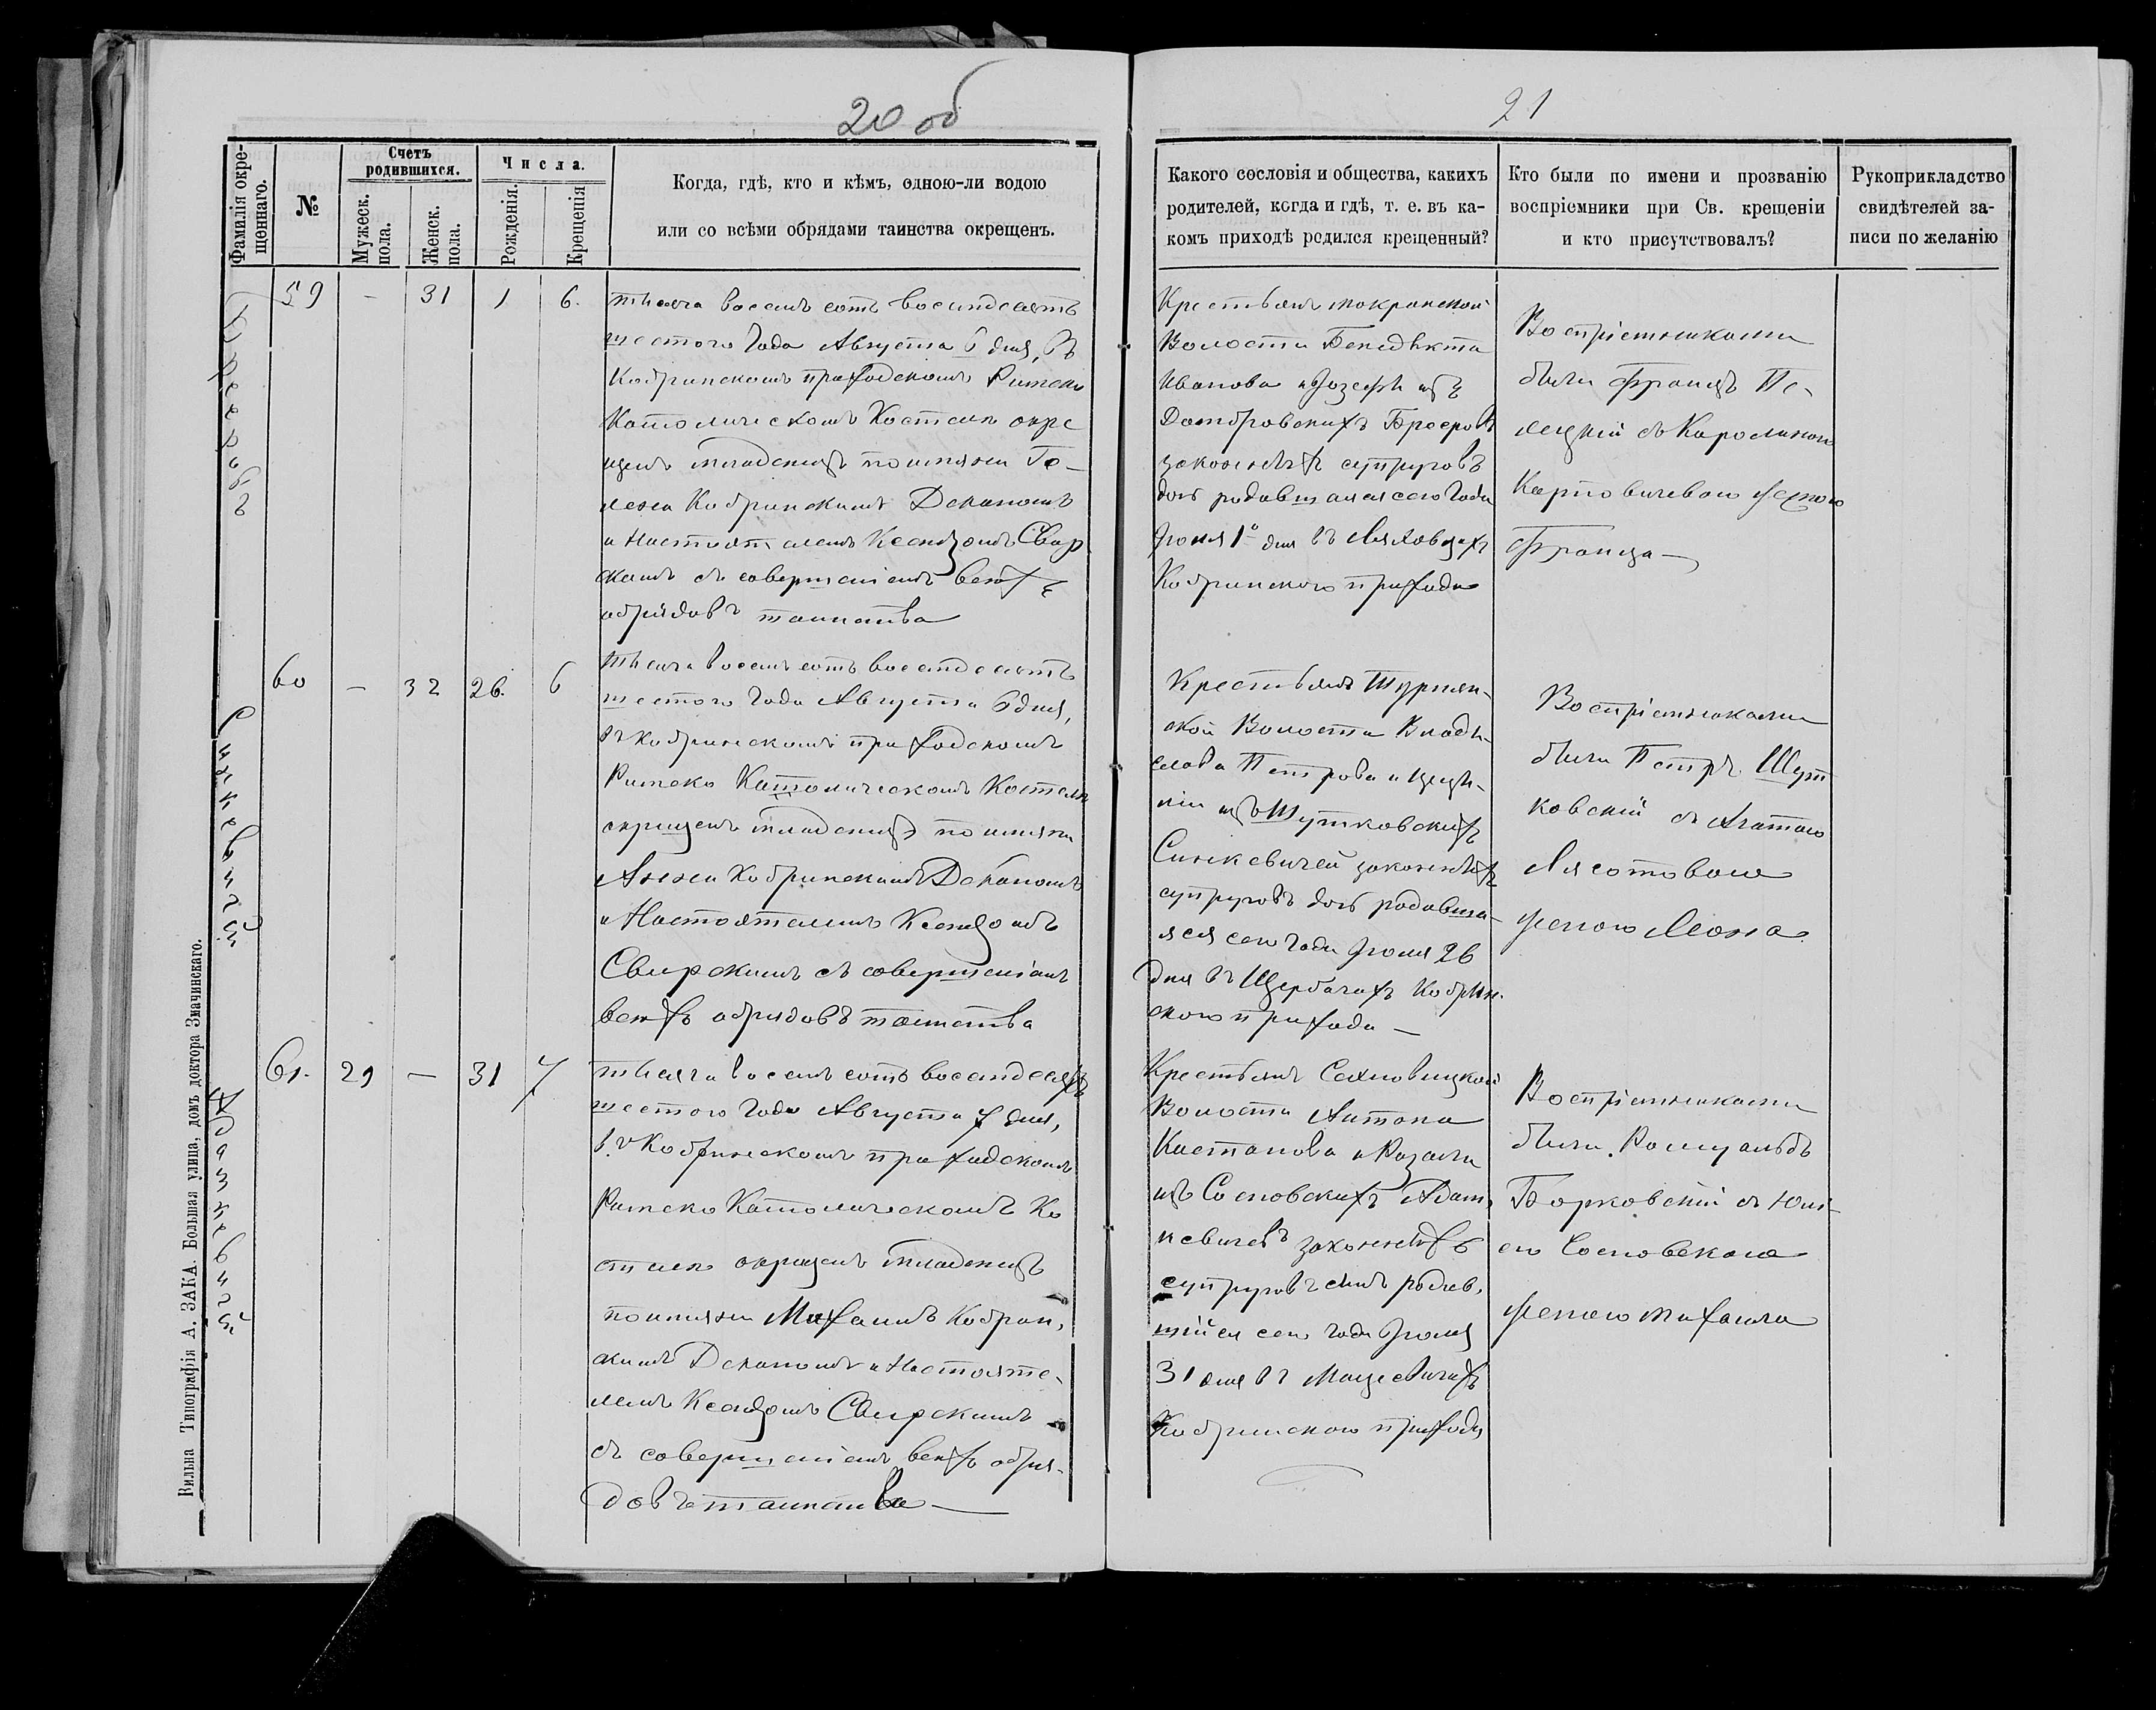 20 об
21
Фамилія окре-
щеннаго.
№
Счетъ
родившихся.
Мужеск.
пола.
Женск.
пола.
Числа.
Рожденія.
Крещенія
Когда, гдѣ, кто и кѣмъ, одною-ли водою
или со всѣми обрядами таинства окрещенъ.
Какого сословія и общества, какихъ
родителей, когда и гдѣ, т. е. въ ка-
комъ приходѣ родился крещенный?
Кто были по имени и прозванію
воспріемники при Св. крещеніи
и кто присутствовалъ?
Рукоприкладство
свидѣтелей за-
писи по желанію
59 - 31 1 6.
тысяча восемь сотъ восемдесятъ
шестого Года Августа 6 дня, въ
Кобринскомъ приходскомъ Римско
Католическомъ Костелѣ окре
щенъ младенецъ по имени
Кобринскимъ Деканомъ
и Настоятелемъ Ксендзомъ Свир
скимъ съ совершеніемъ всѣхъ
обрядовъ таинства
Крестьянъ
Волости Бенедыкта
Иванова и Іозефы изъ
Домбровскихъ
законныхъ супруговъ
дочь родившаяся сего Года
Іюля 1º дня въ Ляховцахъ
Кобринского прихода
Воспріемниками
были Францъ Пе-
лецкій съ Каролиною
Карповичевою женою
Франца —
60 - 32 26. 6
тысяча восемь сотъ восемдесятъ
шестого Года Августа 6 дня,
въ Кобринскомъ приходскомъ
Римско Католическомъ Костелѣ
окрещенъ младенецъ по имени
Анна Кобринскимъ Деканомъ
и Настоятелемъ Ксендзомъ
Свирскимъ съ совершеніемъ
всѣхъ обрядовъ таинства
Крестьянъ
ской Волости Влады-
слава Петрова и Цецы-
ліи изъ Шутковскихъ
Синкевичей законныхъ
супруговъ дочь родивша-
яся сего Года Іюля 26
дня въ Щербачахъ Кобрин-
ского прихода —
Воспріемниками
были Петръ Шут
ковскій съ Агатою
Лясотовою
женою Леона
Синкевичей
61. 29 — 31 7
тысяча восемь сотъ восемдесятъ
шестого Года Августа 7 дня,
въ Кобринскомъ приходскомъ
Римско Католическомъ Ко
стелѣ окрещенъ младенецъ
по имени Михаилъ Кобрин-
скимъ Деканомъ и Настояте-
лемъ Ксендзомъ Свирскимъ
съ совершеніемъ всѣхъ обря-
довъ таинства —
Крестьянъ Сехновицкой
Волости Антона
Каетанова и Розаліи
изъ Сосновскихъ Адам-
кевичевъ законныхъ
супруговъ сынъ родив-
шійся сего Года Іюля
31 дня въ Мацевичахъ
Кобринского прихода
Воспріемниками
были Ромуальдъ
Борковскій съ Юлі-
ею Сосновскою
женою Михаила
Адамкевичей
Вильна Типографія А. ЗАКА. Большая улица, домъ доктора Змачинскаго.